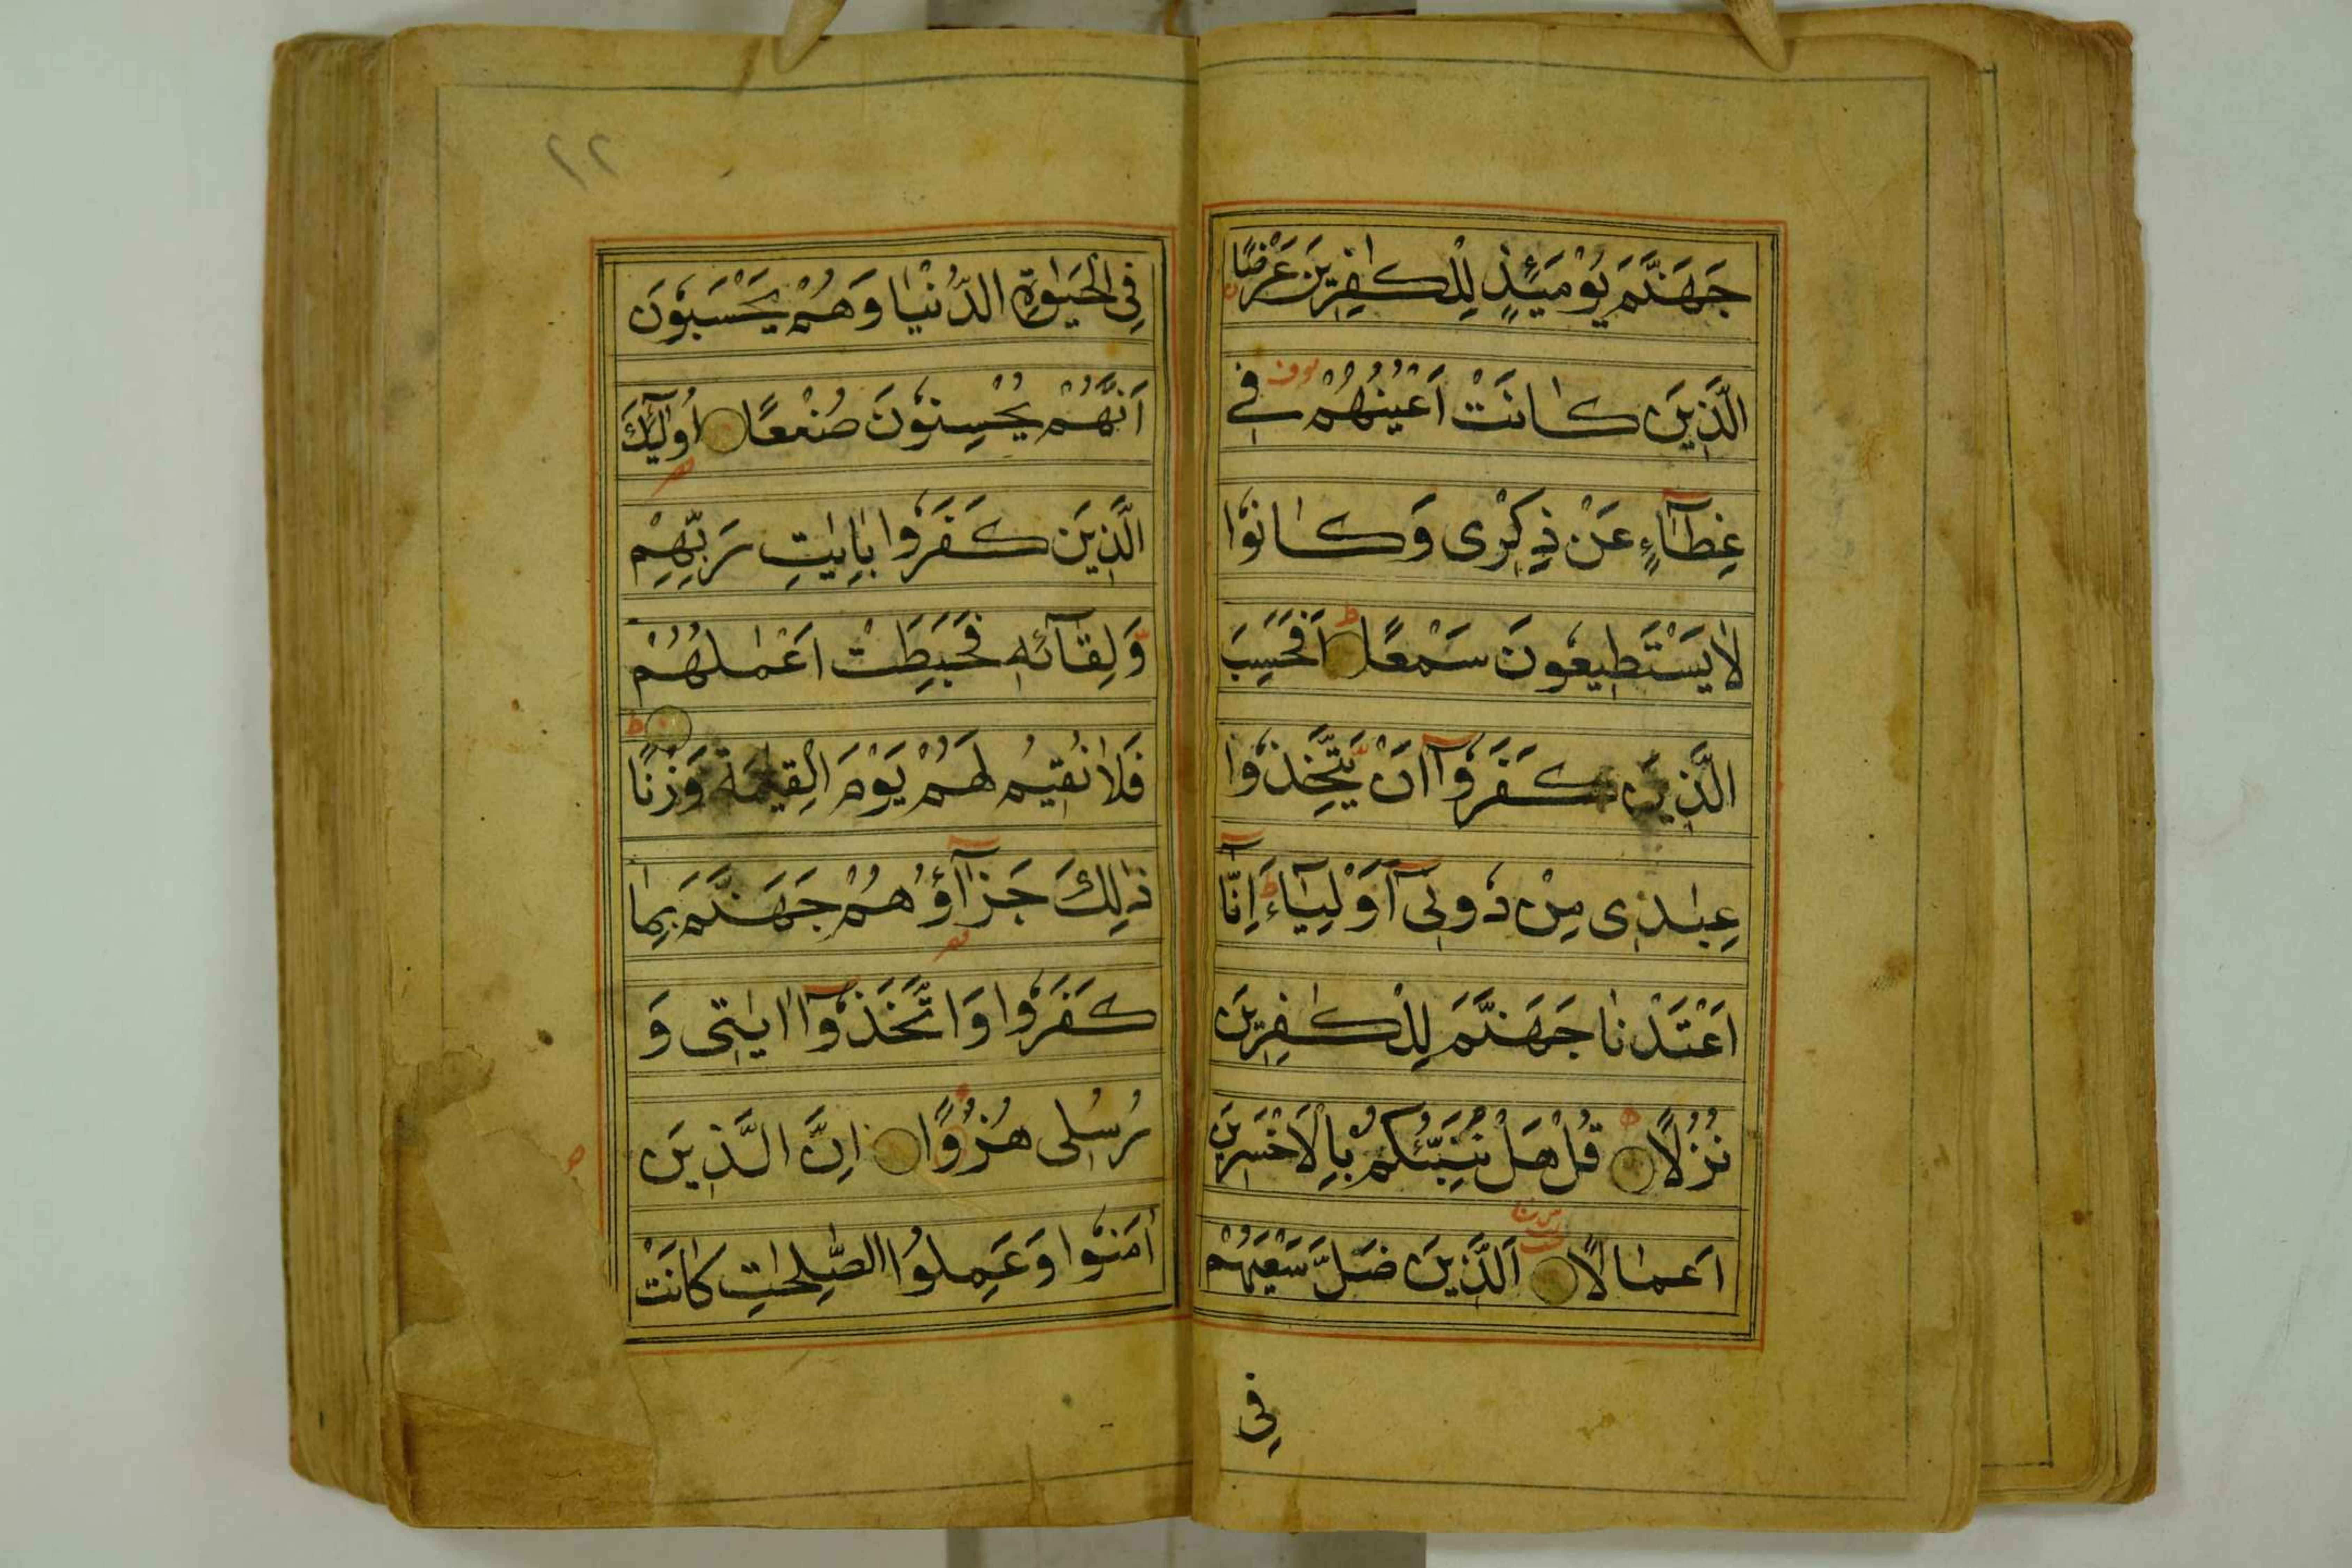 جَهَنَّمَ يَوْمَئِذٍ لِلْكٰفِرِينَ عَرْضًا
الَّذِينَ كٰانَتْ اَعْيُنُهُمْ فِي
غِطَآءٍ عَنْ ذِكْرِى وَكٰانُوا
لٰا يَسْتَطِيعُونَ سَمْعًا اَفَحَسِبَ
الَّذِينَ كَفَرُوآ اَنْ يَتَّخِذُوا
عِبٰادِى مِنْ دُونِىٓ اَوْلِيٰآءَ اِنّٰآ
اَعْتَدْنٰا جَهَنَّمَ لِلْكٰفِرِينَ
نُزُلًا قُلْ هَلْ نُنَبِّئُكُمْ بِالْاَخْسَرِينَ
اَعمٰالًا اَلَّذِينَ ضَلَّ سَعْيُهُمْ
فِى
٢٢
فِى الْحَيٰوةِ الدُّنْيٰا وَهُمْ يَحْسَبُونَ
اَنَّهُمْ يُحْسِنُونَ صُنْعًا اُولٰٓئِكَ
الَّذِينَ كَفَرُوا بِاٰيٰتِ رَبِّهِمْ
وَلِقٰآئِهِ فَحَبِطَتْ اَعْمٰلُهُمْ
فَلٰا نُقِيمُ لَهُمْ يَوْمَ الْقِيٰمَةِ وَزْنًا
ذٰلِكَ جَزٰآؤُهُمْ جَهَنَّمُ بِمٰا
كَفَرُوا وَاتَّخَذُوآ اٰيٰتِى وَ
رُسُلِى هُزُوًا اِنَّ الَّذِينَ
اٰمَنُوا وَعَمِلُوا الصّٰلِحٰتِ كٰانَتْ